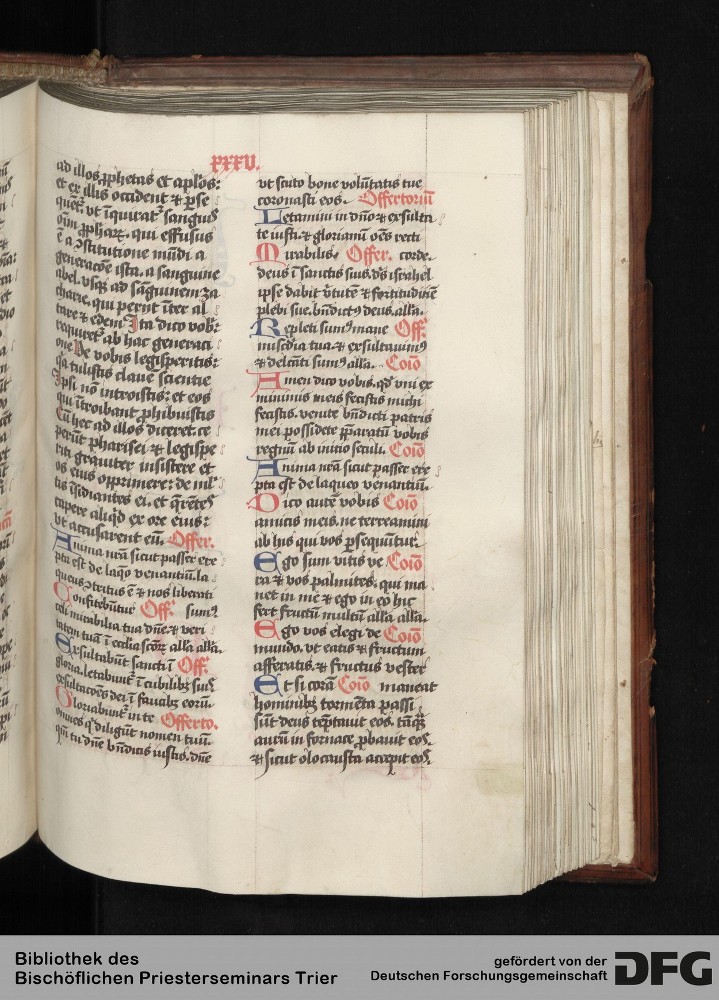 xxxv.
ad illos ꝓphetas et aplos:
et ex illis occident ⁊ ꝑse
quēt̄. vt īquirat᷑ sanguis
oīm ꝓphaꝝ. qui effusus
ē a ꝯstitutione mūdi a
generacōe ista. a sanguine
abel. vsqꝫ ad sanguinem za
charie. qui periit inter al
tare ⁊ edem. Ita dico vob:
requiret᷑ ab hac generaci
one Ve vobis legisperitis:
qa tulistis clauē scientie
Ipsi nō introistis: et eos
qui ītroibant ꝓhibuistis
Cū hec ad illos diceret. ce
perūt pharisei ⁊ legispe
riti grauiter insistere et
os eius opprimere: de ml̄
tis īsidiantes ei. et q̄rētes
capere aliqd ex ore eius:
vt accusarent eū. Offer.
Anima nrā sicut passer ere
pta est de laq̄o venantiū. la
queus ꝯtritus ē ⁊ nos liberati
Confitebūtur Off. sumꝰ
celi mirabilia tua dn̄e. ⁊ veri
tatem tuā ī ecclia scōꝝ alla alla.
Exsultabūt sancti ī Off.
gloria. letabunt᷑ ī cubilibꝫ suis
exsultacōes dei ī faucibꝫ eorū.
Gloriabunt᷑ in te Offerto.
omnes q̄ diligūt nomen tuū.
qm̄ tu dn̄e bn̄dicis iustis. dn̄e
vt scuto bone volūtatis tue
coronasti eos. Offertoriū
Letamini in dn̄o ⁊ exsulta
te iusti. ⁊ gloriami oēs recti
Mirabilis. Offer. corde.
deus ī sanctis suis. ds̄ israhel
ipse dabit v̄tutē ⁊ fortitudinē
plebi sue. bn̄dictꝰ deus. alla.
Repleti sumꝰ mane Off.
mīscdia tua. ⁊ exsultauimꝰ
⁊ delcāti sumꝰ alla. Coīo
Amen dico vobis. qd vni ex
minimis meis fecistis michi
fecistis. venite bn̄dicti patris
mei possidete p̄paratū vobis
regnū ab inicio seculi. Coīo
Anima nrā sicut passer ere
pta est de laqueo venantiū.
Dico autē vobis Coīo
amicis meis. ne terreamini
ab his qui vos ꝑsequūtur.
Ego sum vitis ve Coīo
ra ⁊ vos palmites. qui ma
net in me ⁊ ego in eo hic
fert fructū multū alla alla.
Ego vos elegi de Coīo
mundo. vt eatis ⁊ fructum
afferatis. ⁊ fructus vester
Et si corā Coīo maneat
hominibꝫ tormēta passi
sūt deus tēptauit eos. tāqꝫ
aurū in fornace ꝓbauit eos.
⁊ sicut olocausta accepit eos.
Bibliothek des
Bischöflichen Priesterseminars Trier
gefördert von der
Deutschen Forschungsgemeinschaft
DFG